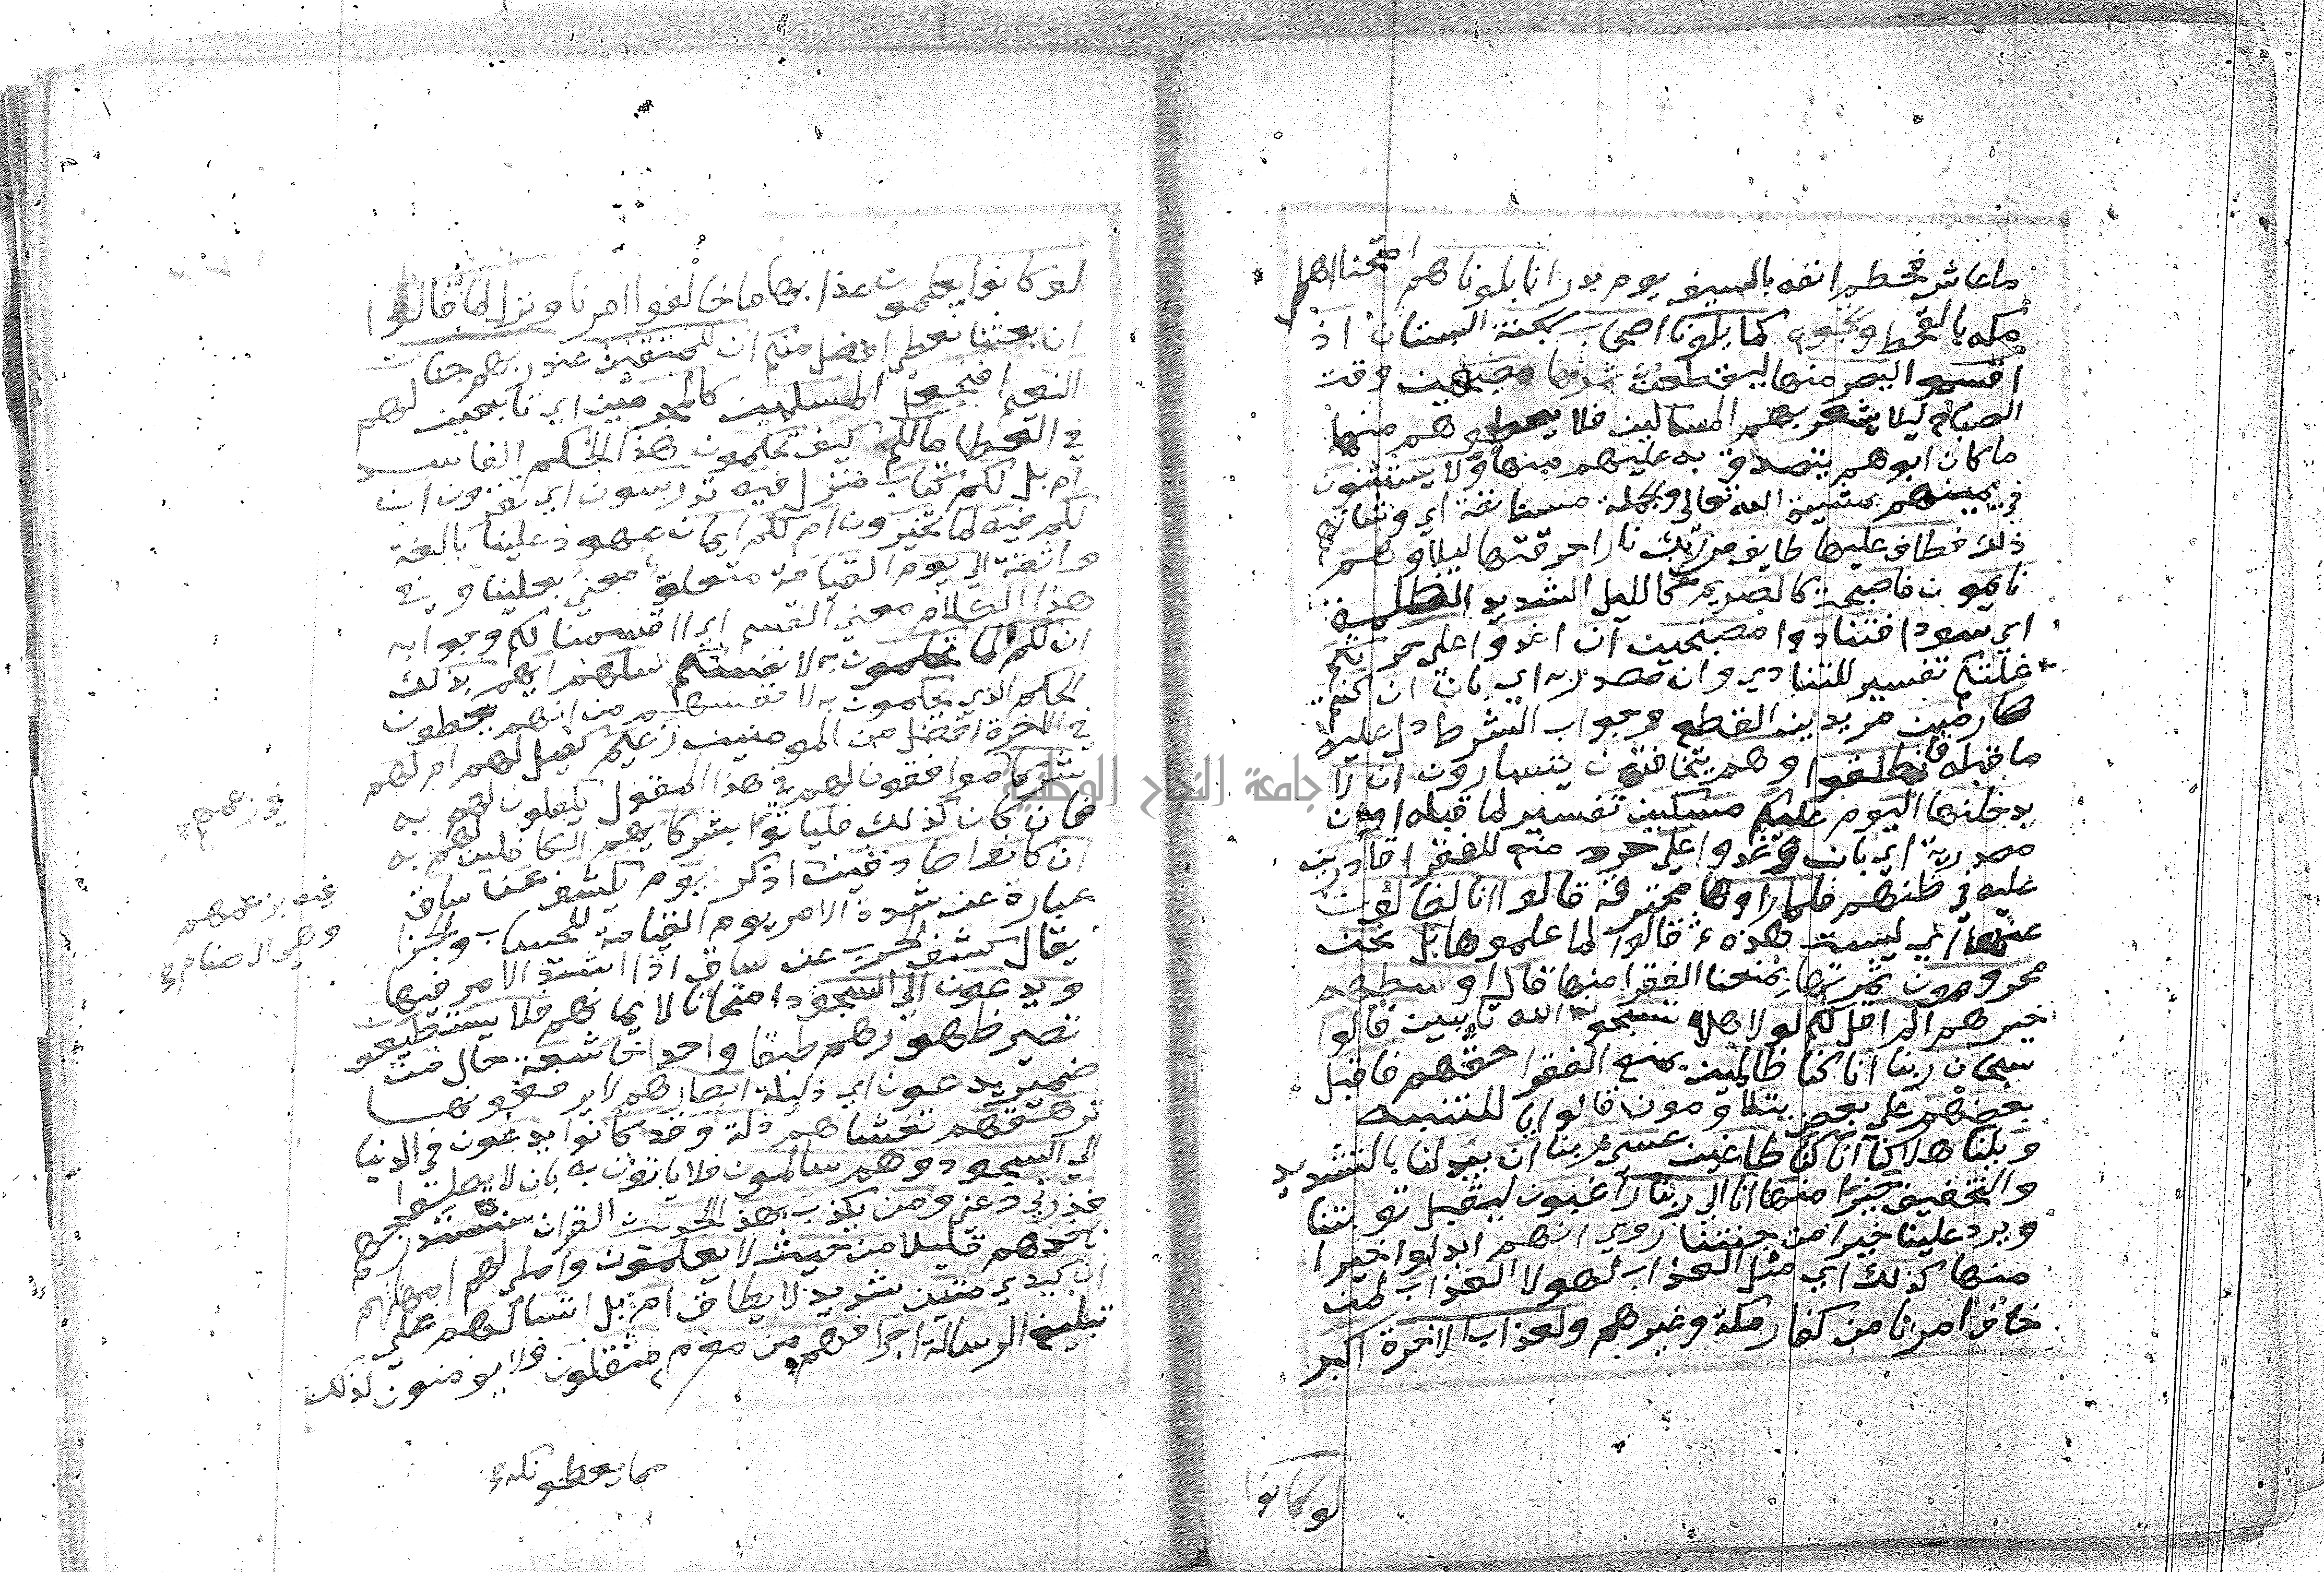 ما عاش فخطم انفه بالسيف يوم بدر انا بلوناهم امتحنا اهل
مكه بالقحط والجوع كما بلونا اصحاب الجنة البستان اذ
اقسموا ليصرمنها ليقطعون ثمرتها مصبحين وقت
الصباح ليلا يشعر بهم المساكين فلا يعطوهم منها
ما كان ابوهم يتصدق به عليهم منها ولا يستثنون
في يمينهم بمشيئة الله تعالى والجملة مستانفة اي وشانهم
ذلك فطاف عليها طايف من ربك نار احرقتها ليلا وهم
نايمون فاصبحت كالصريم كالليل الشديد الظلمة
اي سودا فتنادوا مصبحين ان اغدوا على حرثكم
غلتكم تفسير للتنادي وان مصدرية اي بان ان كنتم
صارمين مريدين القطع وجواب الشرط دل عليه
ما قبله فانطلقوا وهم يتخافتون يتسارون ان لا
يدخلنها اليوم عليكم مسكين تفسير لما قبله او ان
مصدرية اي بان وغدوا على حرد منع للفقرا قادرين
عليه في ظنهم فلما راوها محترقة قالوا انا لضالون
عنها اي ليست هذه ثم قالوا لما علموها بل نحن
محرومون ثمرتها بمنعنا الفقرا منها قال اوسطهم
خيرهم الم اقل لكم لولا هلا تسبحون الله تايبين قالوا
سبحان ربنا انا كنا ظالمين بمنع الفقرا حقهم فاقبل
بعضهم على بعض يتلاومون قالوا يا للتنبيه
ويلنا هلاكنا انا كنا طاغين عسى ربنا ان يبدلنا بالتشديد
والتخفيف خيرا منها انا الى ربنا راغبون ليقبل توبتنا
ويرد علينا خيرا من جنتنا روي انهم ابدلوا خيرا
منها كذلك اي مثل العذاب لهولا العذاب لمن
خالف امرنا من كفار مكة وغيرهم ولعذاب الاخرة اكبر
لو كانوا
لو كانوا يعلمون عذابها ما خالفوا امرنا ونزل لما قالوا
ان بعثنا نعطى افضل منكم ان للمتقين عند ربهم جنات
النعيم افنجعل المسلمين كالمجرمين اي تابعين لهم
في العطا ما لكم كيف تحكمون هذا الحكم الفاسد
ام بل لكم كتاب منزل فيه تدرسون اي تقرون ان
لكم فيه لما تخيرون ام لكم ايمان عهود علينا بالغة
واثقة الى يوم القيامة متعلق معنى بعلينا وفي
هذا الكلام معنى القسم اي اقسمنا لكم وجوابه
ان لكم لما تحكمون به لانفسكم سلهم ايهم بذلك
الحكم الذي يحكمون به لانفسهم من انهم يعطون
في الاخرة افضل من المومنين زعيم كفيل لهم ام لهم
شركا موافقون لهم في هذا المقول يكفلون لهم به
فان كان كذلك فلياتوا بشركايهم الكافلين لهم به
ان كانوا صادقين اذكر يوم يكشف عن ساق
عبارة عن شدة الامر يوم القيامة للحساب والجزا
يقال كشف الحرب عن ساق اذا اشتد الامر فيها
ويدعون الى السجود امتحانا لايمانهم فلا يستطيعون
تصير ظهورهم طبقا واحدا خاشعة حال من
ضمير يدعون اي ذليلة ابصارهم لا يرفعونها
ترهقهم تغشاهم ذلة وقد كانوا يدعون في الدنيا
الى السجود وهم سالمون فلا ياتون به بان لا يصلوا
فذرني دعني ومن يكذب بهذا الحديث القران سنستدرجهم
ناخذهم قليلا من حيث لا يعلمون واملي لهم امهلهم
ان كيدي متين شديد لا يطاق ام بل اتسالهم على
تبليغ الرسالة اجرا فهم من مغرم مثقلون فلا يومنون لذلك
مما يعطونكه
جامعة النجاح الوطنية